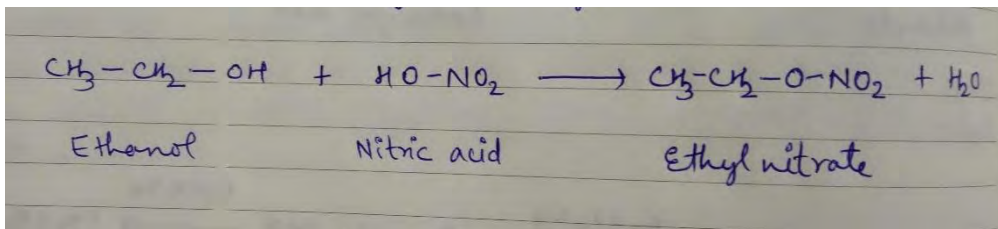 CH₃-CH₂-OH + HO-NO₂ ⟶ CH₃-CH₂-O-NO₂ + H₂O
Ethanol Nitric acid Ethyl nitrate